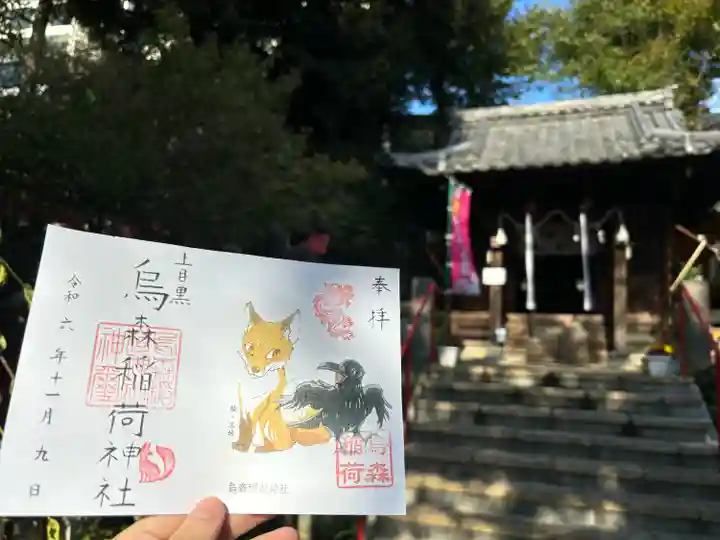 奉拝
上目黒
烏森稲荷神社
令和六年十一月九日
烏森稲荷
烏森稲荷神社